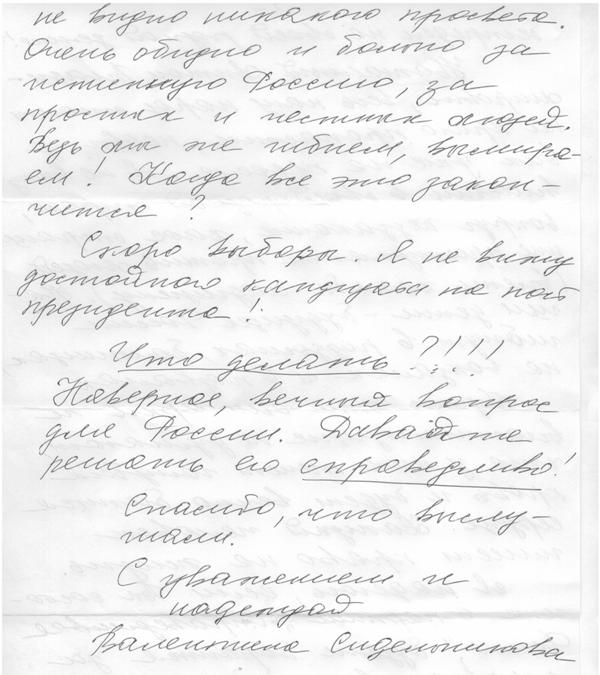 не видно никакого просвета.
Очень обидно и больно за
истинную Россию, за
простых и честных людей.
Ведь мы же гибнем, вымира-
ем! Когда все это закон-
чится?
Скоро выборы. Я не вижу
достойного кандидата на пост
президента!
Что делать?!!!
Наверное, вечный вопрос
для России. Давайте
решать его справедливо!
Спасибо, что выслу-
шали.
С уважением и
надеждой
Валентина Сидельникова